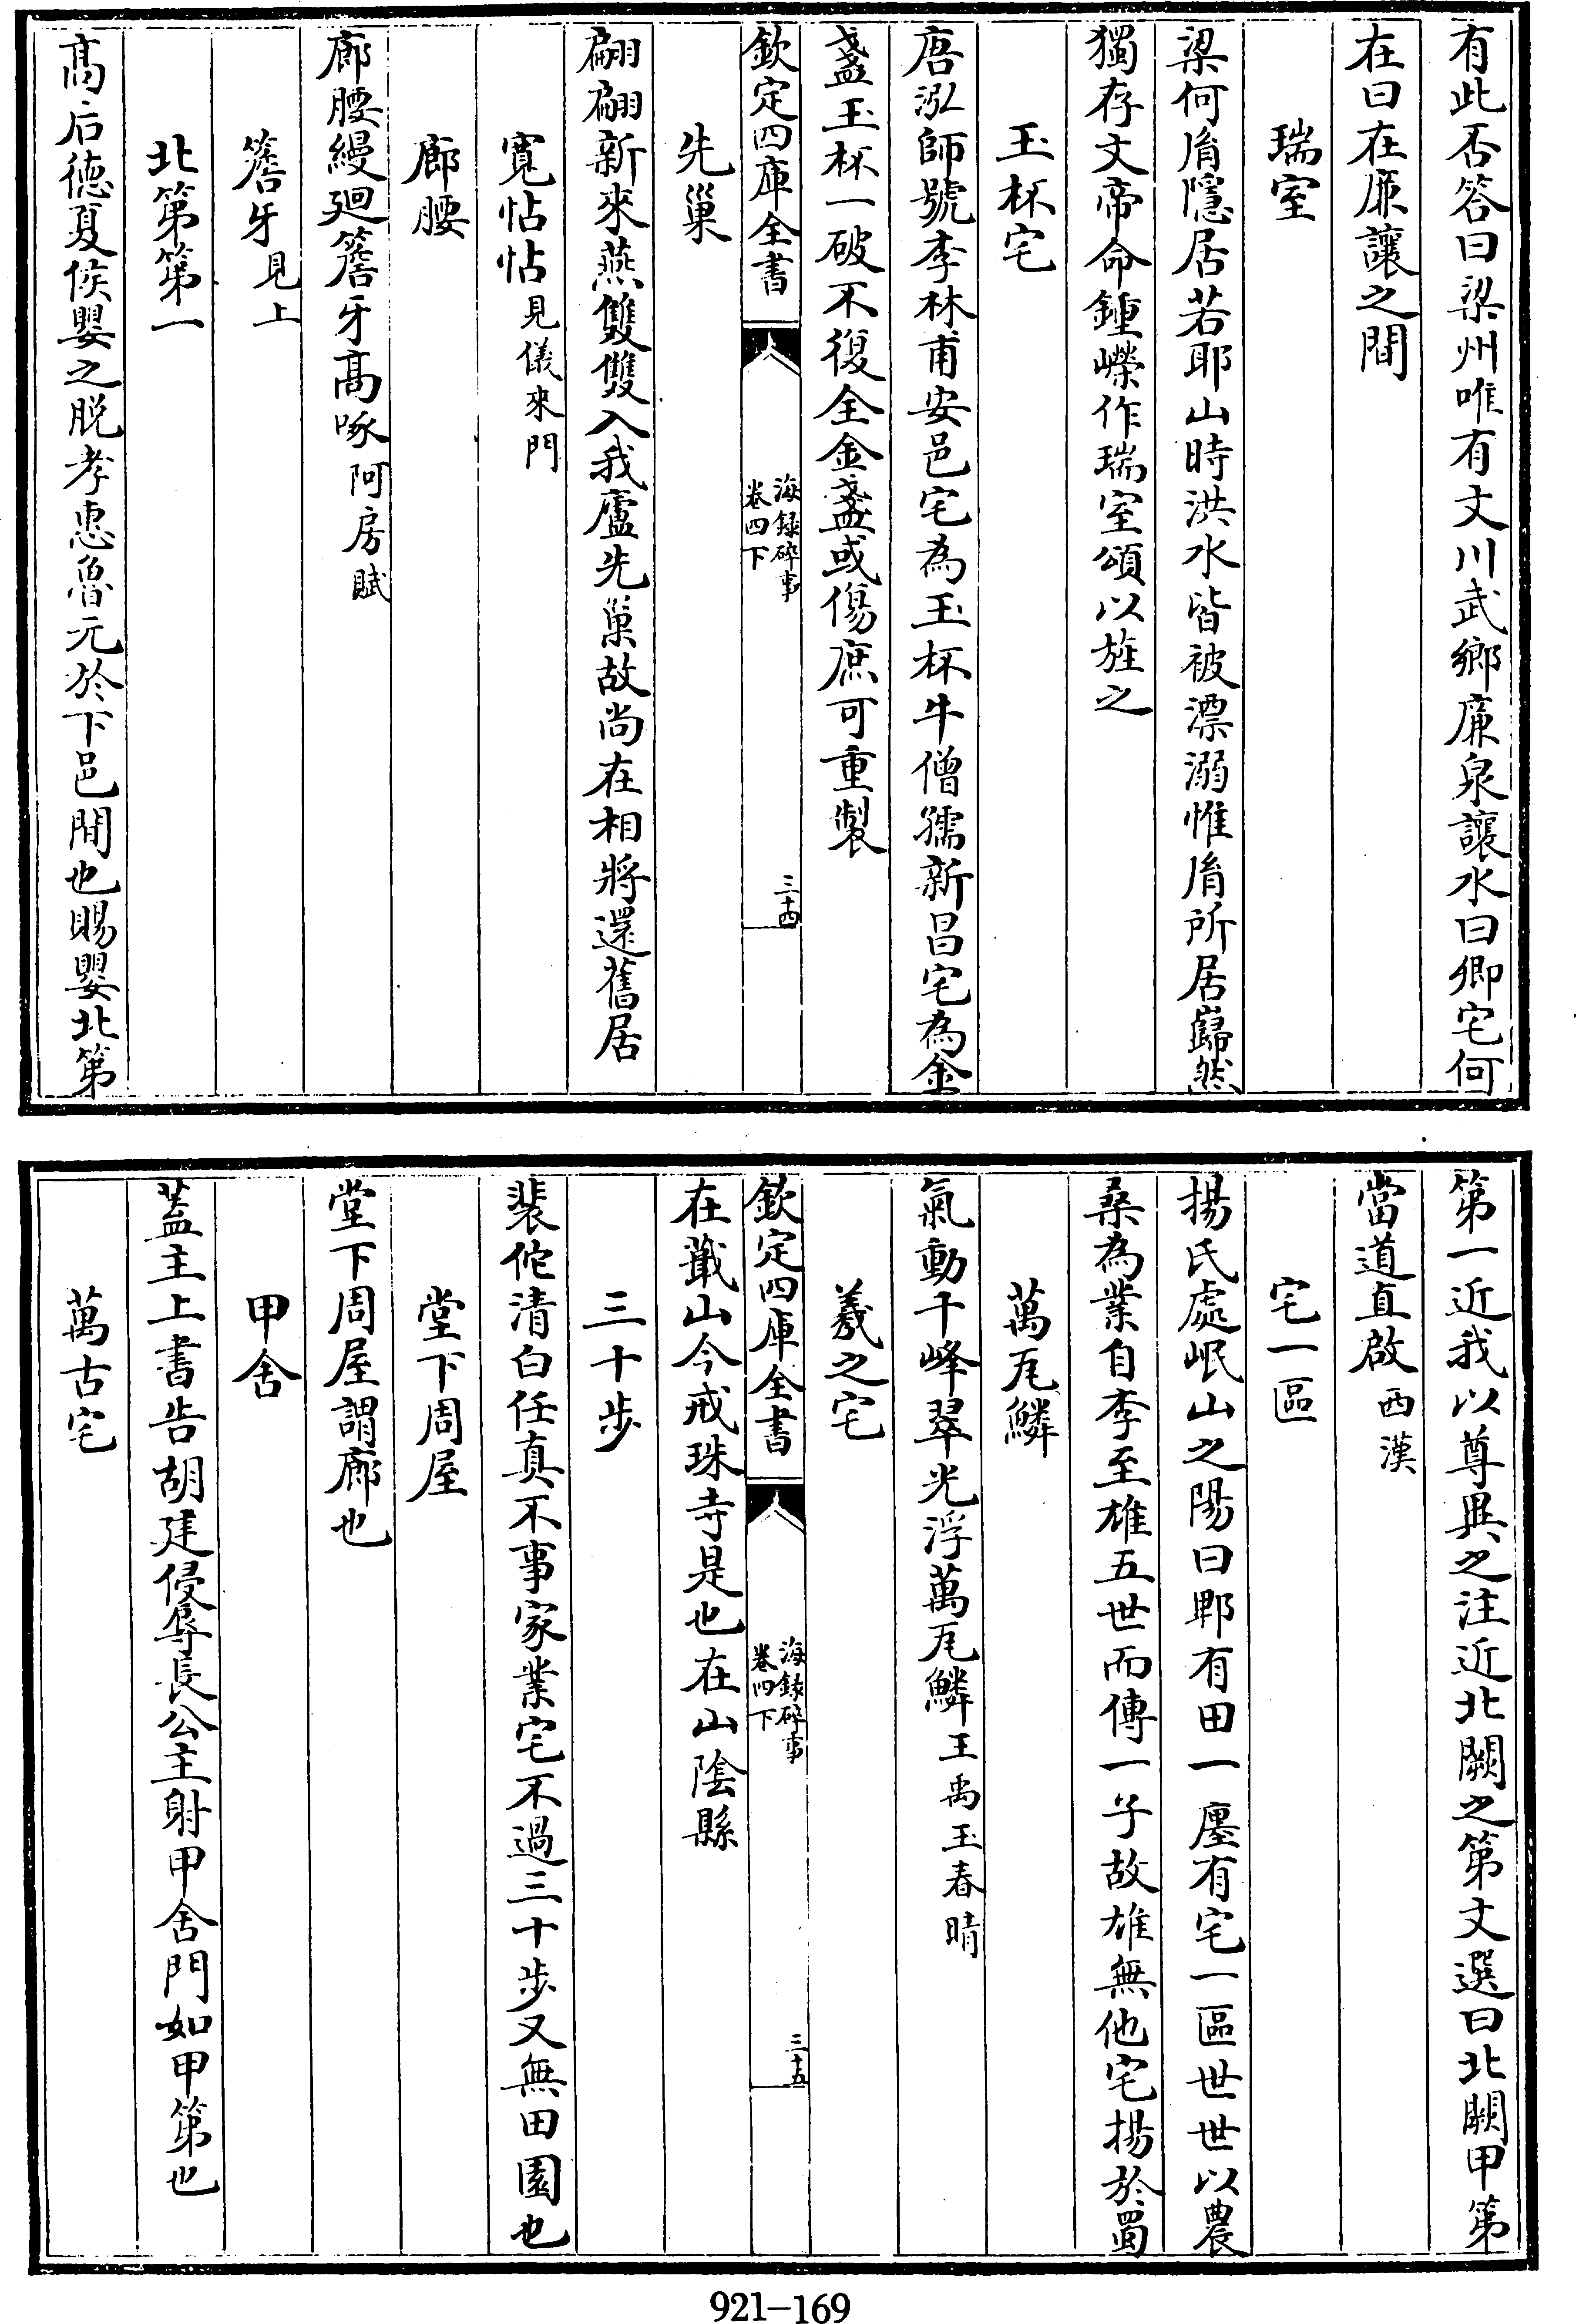 有此否答曰梁州唯有文川武鄉廉泉讓水曰卿宅何
在曰在廉讓之間
瑞室
梁何胤隱居若耶山時洪水皆被漂溺惟胤所居巋然
獨存文帝命鍾嶸作瑞室頌以旌之
玉杯宅
唐泓師號李林甫安邑宅為玉杯牛僧孺新昌宅為金
盞玉杯一破不復全金盞或傷庶可重製
欽定四庫全書
海録碎事
卷四下
三十四
先巢
翩翩新來燕雙雙入我廬先巢故尚在相將還舊居
寛帖帖見儀來門
廊腰
廊腰縵廻簷牙髙啄阿房賦
簷牙見上
北第第一
髙后徳夏侯嬰之脱孝惠魯元於下邑間也賜嬰北第
第一近我以尊異之注近北闕之第文選曰北闕甲第
當道直啟西漢
宅一區
揚氏處岷山之陽曰郫有田一廛有宅一區世世以農
桑為業自季至雄五世而傳一子故雄無他宅揚於蜀
萬瓦鱗
氣動千峰翠光浮萬瓦鱗王禹玉春晴
羲之宅
欽定四庫全書
海録碎事
卷四下
三十五
在蕺山今戒珠寺是也在山隂縣
三十步
裴佗清白任真不事家業宅不過三十步又無田園也
堂下周屋
堂下周屋謂廊也
甲舍
蓋主上書告胡建侵辱長公主射甲舍門如甲第也
萬古宅
921-169